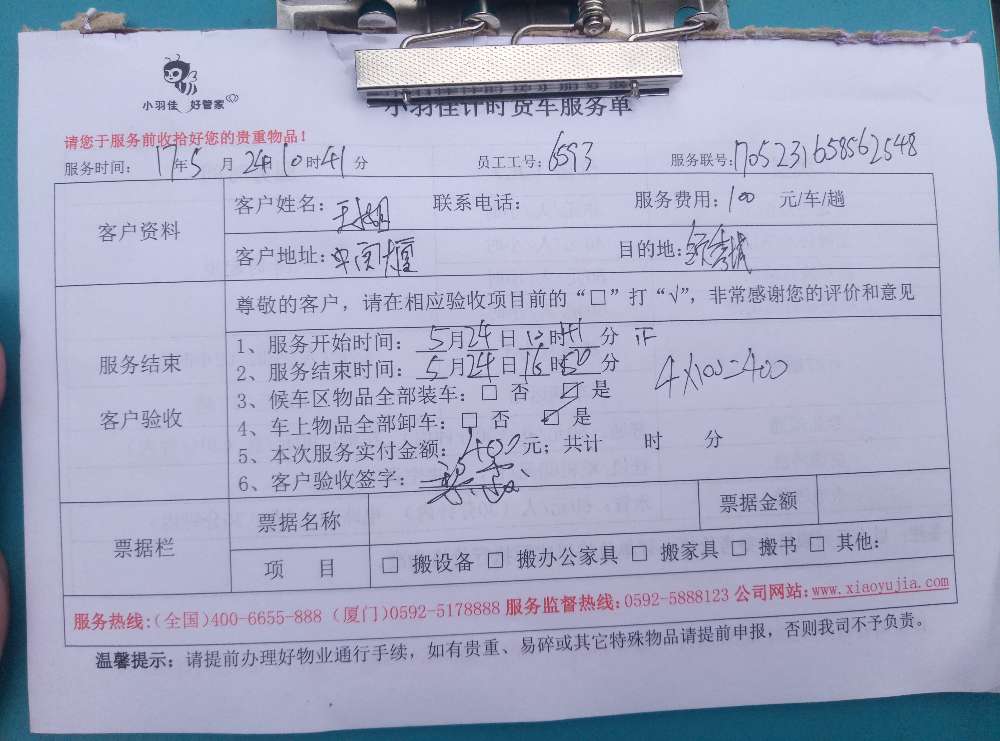 小羽佳 好管家
小羽佳计时货车服务单
请您于服务前收拾好您的贵重物品！
服务时间： 17年5月24日10时41分 员工工号：6593 服务联号：1705231658562548
客户资料
客户姓名：王小姐 联系电话： 服务费用：100 元/车/趟
客户地址： 目的地：
服务结束
客户验收
尊敬的客户，请在相应验收项目前的“□”打“√”，非常感谢您的评价和意见
1、服务开始时间： 5月24日12时41分 正
2、服务结束时间： 5月24日16时50分
4×100=400
3、候车区物品全部装车：□ 否 ☑ 是
4、车上物品全部卸车：□ 否 ☑ 是
5、本次服务实付金额：400元；共计 时 分
6、客户验收签字：
票据栏
票据名称 票据金额
项 目 □ 搬设备 □ 搬办公家具 □ 搬家具 □ 搬书 □ 其他：
服务热线：（全国）400-6655-888（厦门）0592-5178888 服务监督热线：0592-5888123 公司网站：www.xiaoyujia.com
温馨提示：请提前办理好物业通行手续，如有贵重、易碎或其它特殊物品请提前申报，否则我司不予负责。